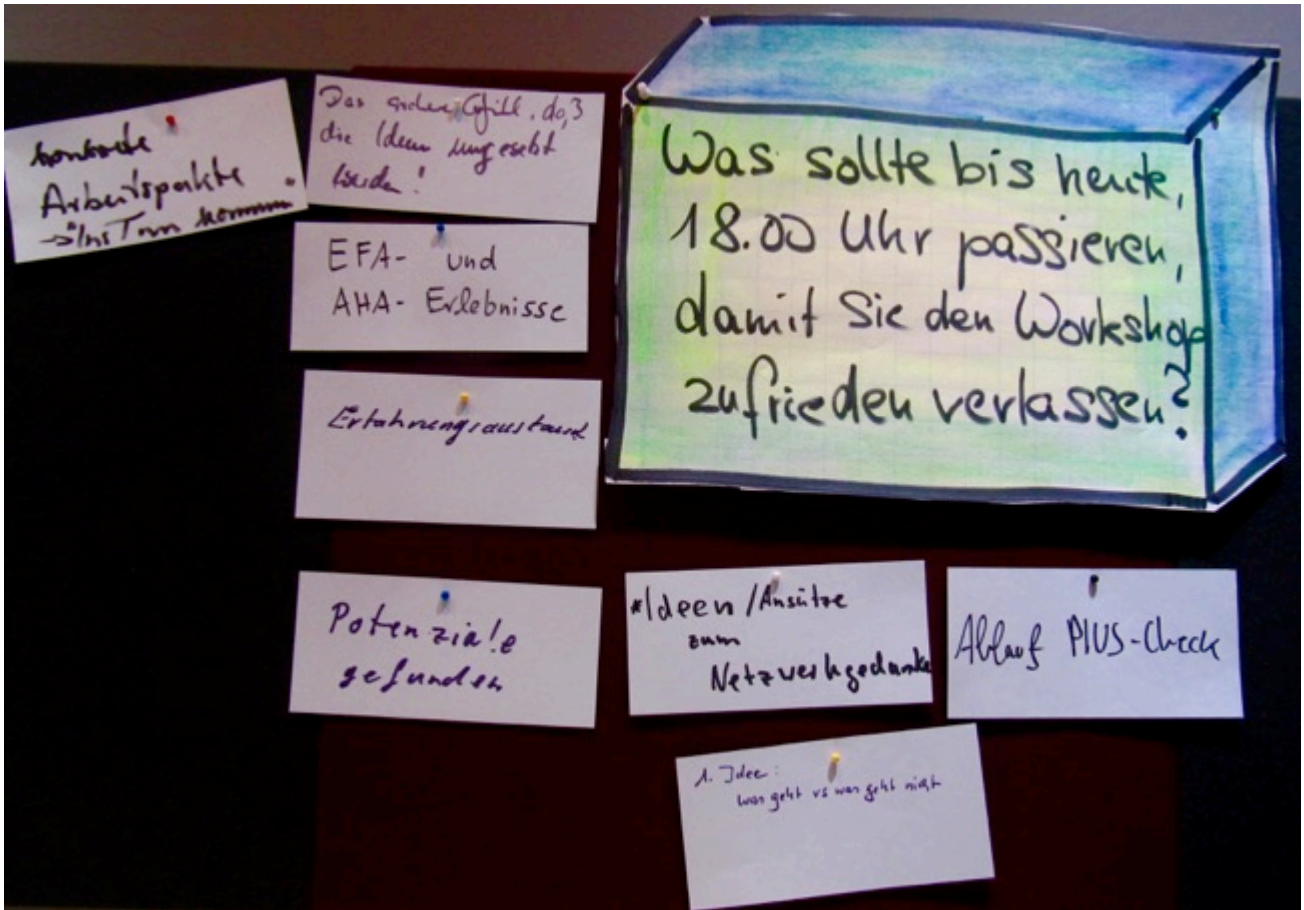 Was sollte bis heute,
18.00 Uhr passieren,
damit Sie den Workshop
zufrieden verlassen?
konkrete
Arbeitspakte
→ Ins Tun kommen
Das sichere Gefühl, daß
die Ideen umgesetzt
werden!
EFA- und
AHA-Erlebnisse
Erfahrungsaustausch
Potenziale
gefunden
*Ideen/Ansätze
zum
Netzwerkgedanke
Ablauf PIUS-Check
1. Idee:
was geht vs was geht nicht